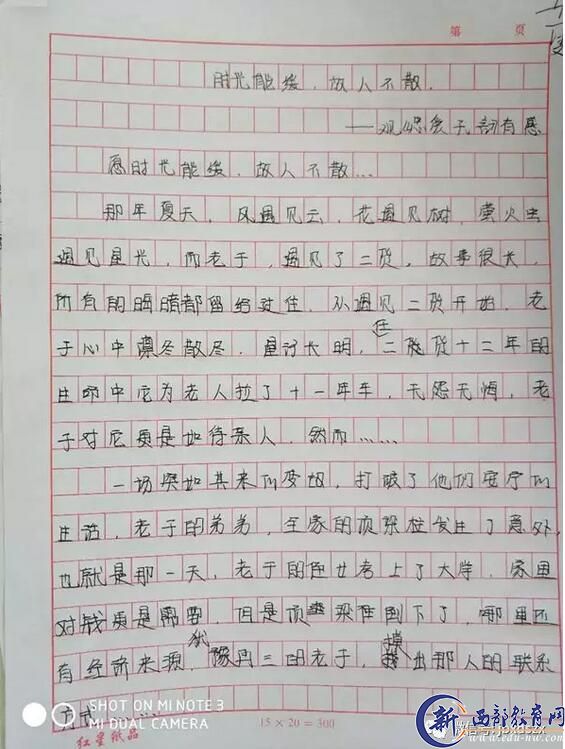 第 页
时光能缓，故人不散.
——观《忠爱无言》有感
愿时光能缓，故人不散…
那年夏天，风遇见云，花遇见树，萤火虫
遇见星光，而老于，遇见了二货，故事很长，
所有的晦暗都留给过往，从遇见二货开始，老
于心中凛冬散尽，星河长明，在二货十二年的
生命中它为老人拉了十一年车，无怨无悔，老
于对它更是如待亲人，然而……
一场突如其来的变故，打破了他们安宁的
生活，老于的弟弟，全家的顶梁柱发生了意外，
也就是那一天，老于的侄女考上了大学，家里
对钱更是需要，但是顶梁柱倒下了，哪里还
有经济来源，犹豫再三的老于，摸出那人的联系
方式……
15×20=300
红星纸品
SHOT ON MI NOTE 3
MI DUAL CAMERA
新 西部教育网
www.edu-nw.com